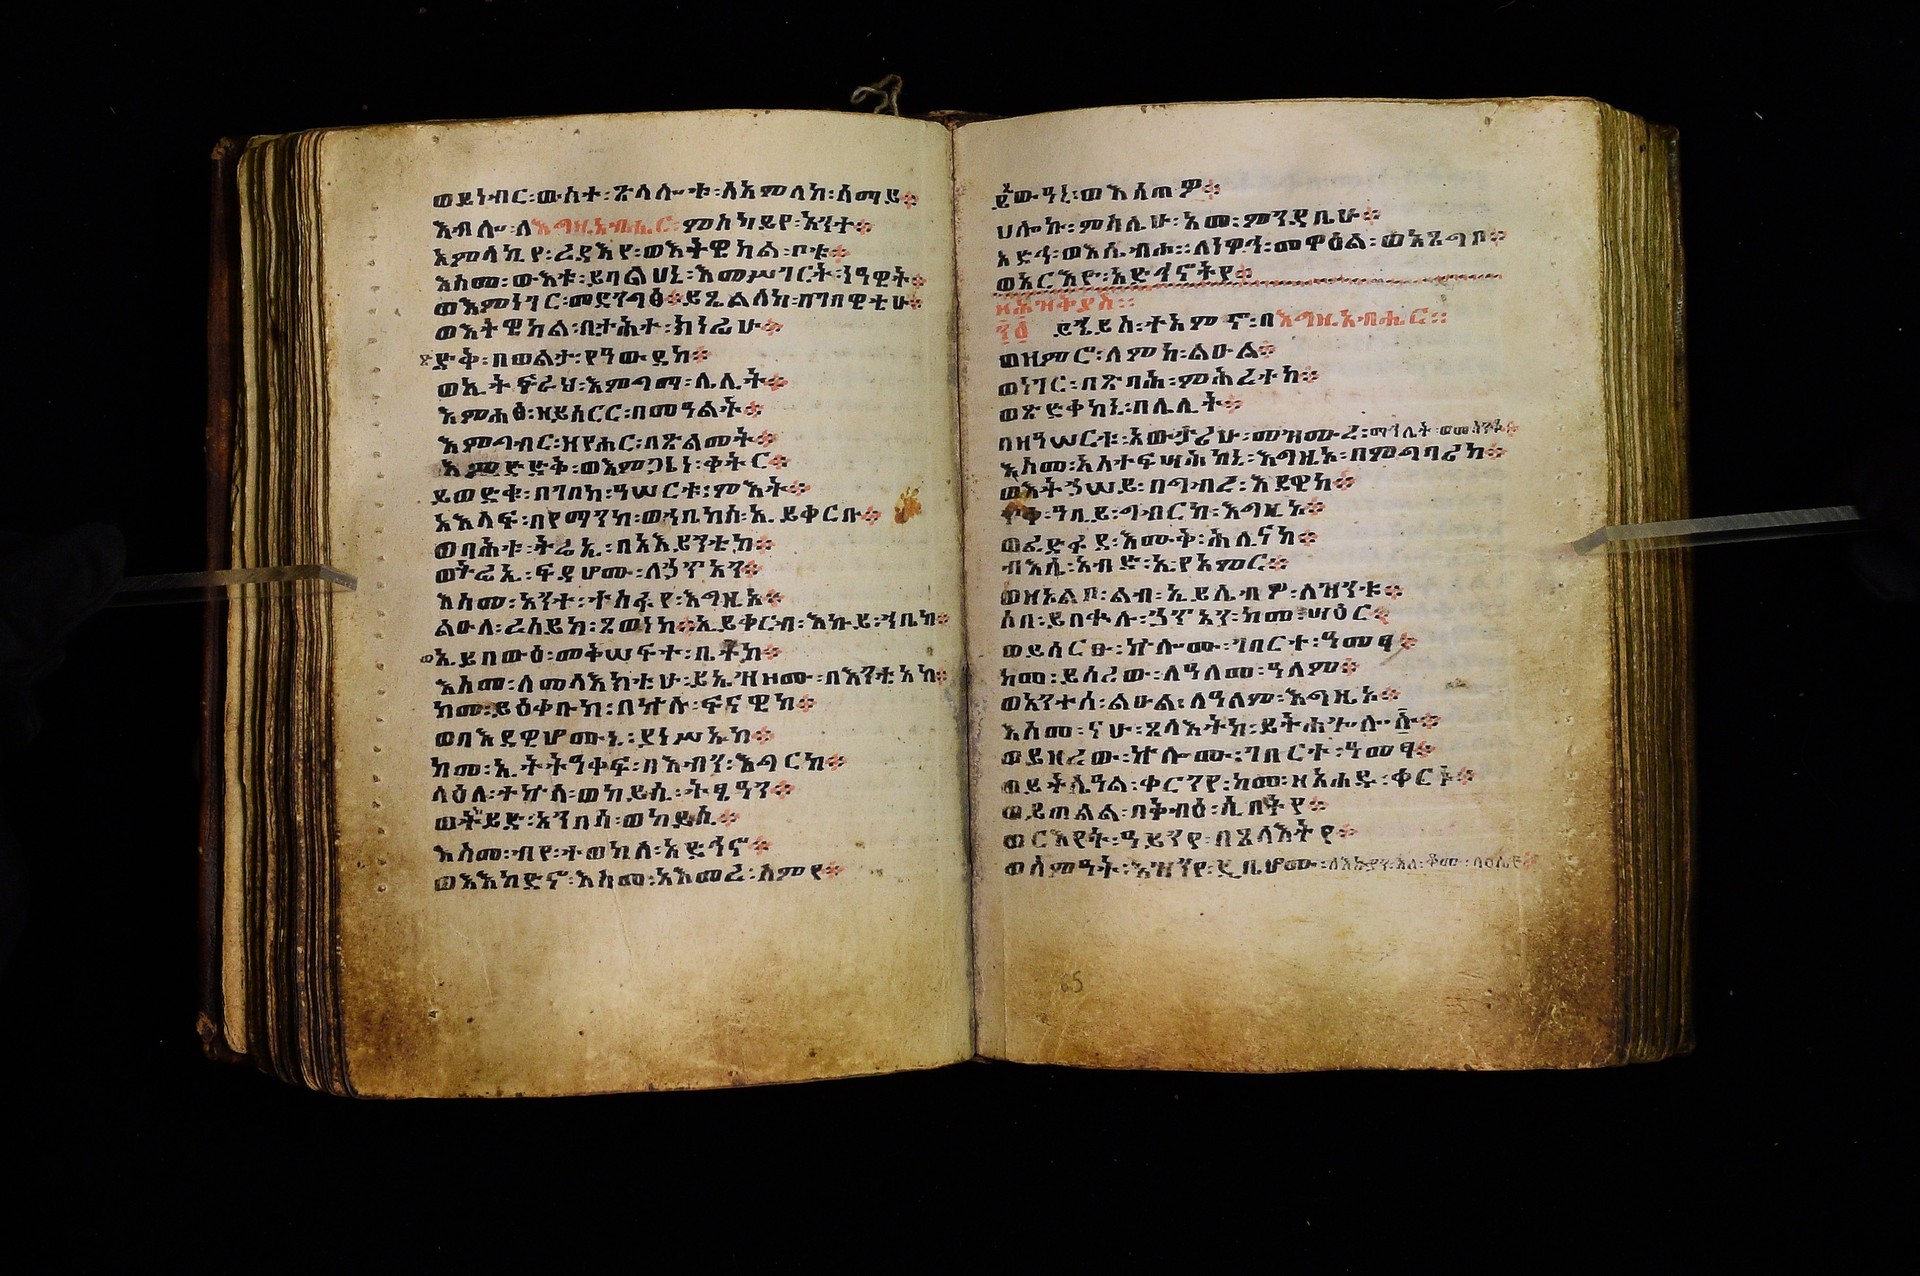 ወይነብር፡ውስተ፡ጽላሎቱ፡ለአምላከ፡ሰማይ፨
እብሎ፡ለእግዚአብሔር፡ምስካይየ፡አንተ፨
አምላኪየ፡ረዳእየ፡ወእትዌከል፡ቦቱ፨
እስመ፡ውእቱ፡ይባልሀኒ፡እመሥገርት፡ነዓዊት፨
ወእምነገር፡መደንግፅ፨ይጼልለከ፡በገበዋቲሁ፨
ወትትዌከል፡በታሕተ፡ክነፊሁ፨
ጽድቅ፡በወልታ፡የዓውደከ፨
ወኢትፍራህ፡እምግማ፡ሌሊት፨
እምሐፅ፡ዘይሰርር፡በመዓልት፨
እምግብር፡ዘየሐር፡በጽልመት፨
እምድድቅ፡ወእምጋኔነ፡ቀትር፨
ይወድቁ፡በገበከ፡ዓሠርቱ፡ምእት፨
አእላፍ፡በየማንከ፡ወኀቤከሰ፡ኢይቀርቡ፨
ወባሕቱ፡ትሬኢ፡በአእይንቲከ፨
ወትሬኢ፡ፍዳሆሙ፡ለኃጥአን፨
እስመ፡አንተ፡ተስፋየ፡እግዚኦ፨
ልዑለ፡ረሰይከ፡ጸወነከ፨ኢይቀርብ፡እኩይ፡ኀቤከ፨
ወኢይበውዕ፡መቅሠፍት፡ቤትከ፨
እስመ፡ለመላእክቲሁ፡ይኤዝዘሙ፡በእንቲአከ፨
ከመ፡ይዕቀቡከ፡በኵሉ፡ፍናዊከ፨
ወበእደዊሆሙኒ፡ያነሥኡከ፨
ከመ፡ኢትትዓቀፍ፡በእብን፡እግርከ፨
ላዕለ፡ተኵላ፡ወከይሲ፡ትፂዓን፨
ወትይድ፡አንበሳ፡ወከይሲ፨
እስመ፡ብየ፡ተወከለ፡አድኅኖ፨
ወእከድኖ፡እስመ፡አእመረ፡ስምየ፨
ይጼውዓኒ፡ወእሰጠዎ፨
ሀሎኩ፡ምስሌሁ፡አመ፡ምንዳቤሁ፨
አድኅኖ፡ወእሴብሖ፡ለነዋኅ፡መዋዕል፡ወአጸግቦ፨
ወአርእዮ፡አድኅኖትየ፨
ዘሕዝቅያስ፡፡
፺፩ ይኄይስ፡ተአምኖ፡በእግዚአብሔር፡፡
ወዘምሮ፡ለስምከ፡ልዑል፨
ወነገር፡በጽባሕ፡ምሕረተከ፨
ወጽድቀከኒ፡በሌሊት፨
በዘዓሠርቱ፡አውታሪሁ፡መዝሙረ፡ማኅሌት፡
እስመ፡አስተፍሣሕከኒ፡እግዚኦ፡በምግባሪከ፨
ወእትኀሠይ፡በግብረ፡እደዊከ፨
ጥቀ፡ዓቢይ፡ግብርከ፡እግዚኦ፨
ወፈድፋደ፡እሙቅ፡ሕሊናከ፨
ብእሲ፡አብድ፡ኢየአምር፨
ወዘአልቦ፡ልብ፡ኢይሌብዎ፡ለዝንቱ፨
ሶበ፡ይበቍሉ፡ኃጥአን፡ከመ፡ሣዕር፨
ወይሰርፁ፡ኵሎሙ፡ገበርተ፡ዓመፃ፨
ከመ፡ይሰረው፡ለዓለመ፡ዓለም፨
ወአንተሰ፡ልዑል፡ለዓለም፡እግዚኦ፨
እስመ፡ናሁ፡ጸላእትከ፡ይትሐጐሉ፡
ወይዘረው፡ኵሎሙ፡ገበርተ፡ዓመፃ፨
ወይትሌዓል፡ቀርንየ፡ከመ፡ዘአሐዱ፡ቀርኑ፨
ወይጠልል፡በቅብዕ፡ሲበትየ፨
ወርእየት፡ዓይንየ፡በጸላእትየ፨
ወሰምዓት፡እዝንየ፡ዲቤሆሙ፡ለእኩያን፡እለ፡ቆሙ፡ላዕሌየ፨
65